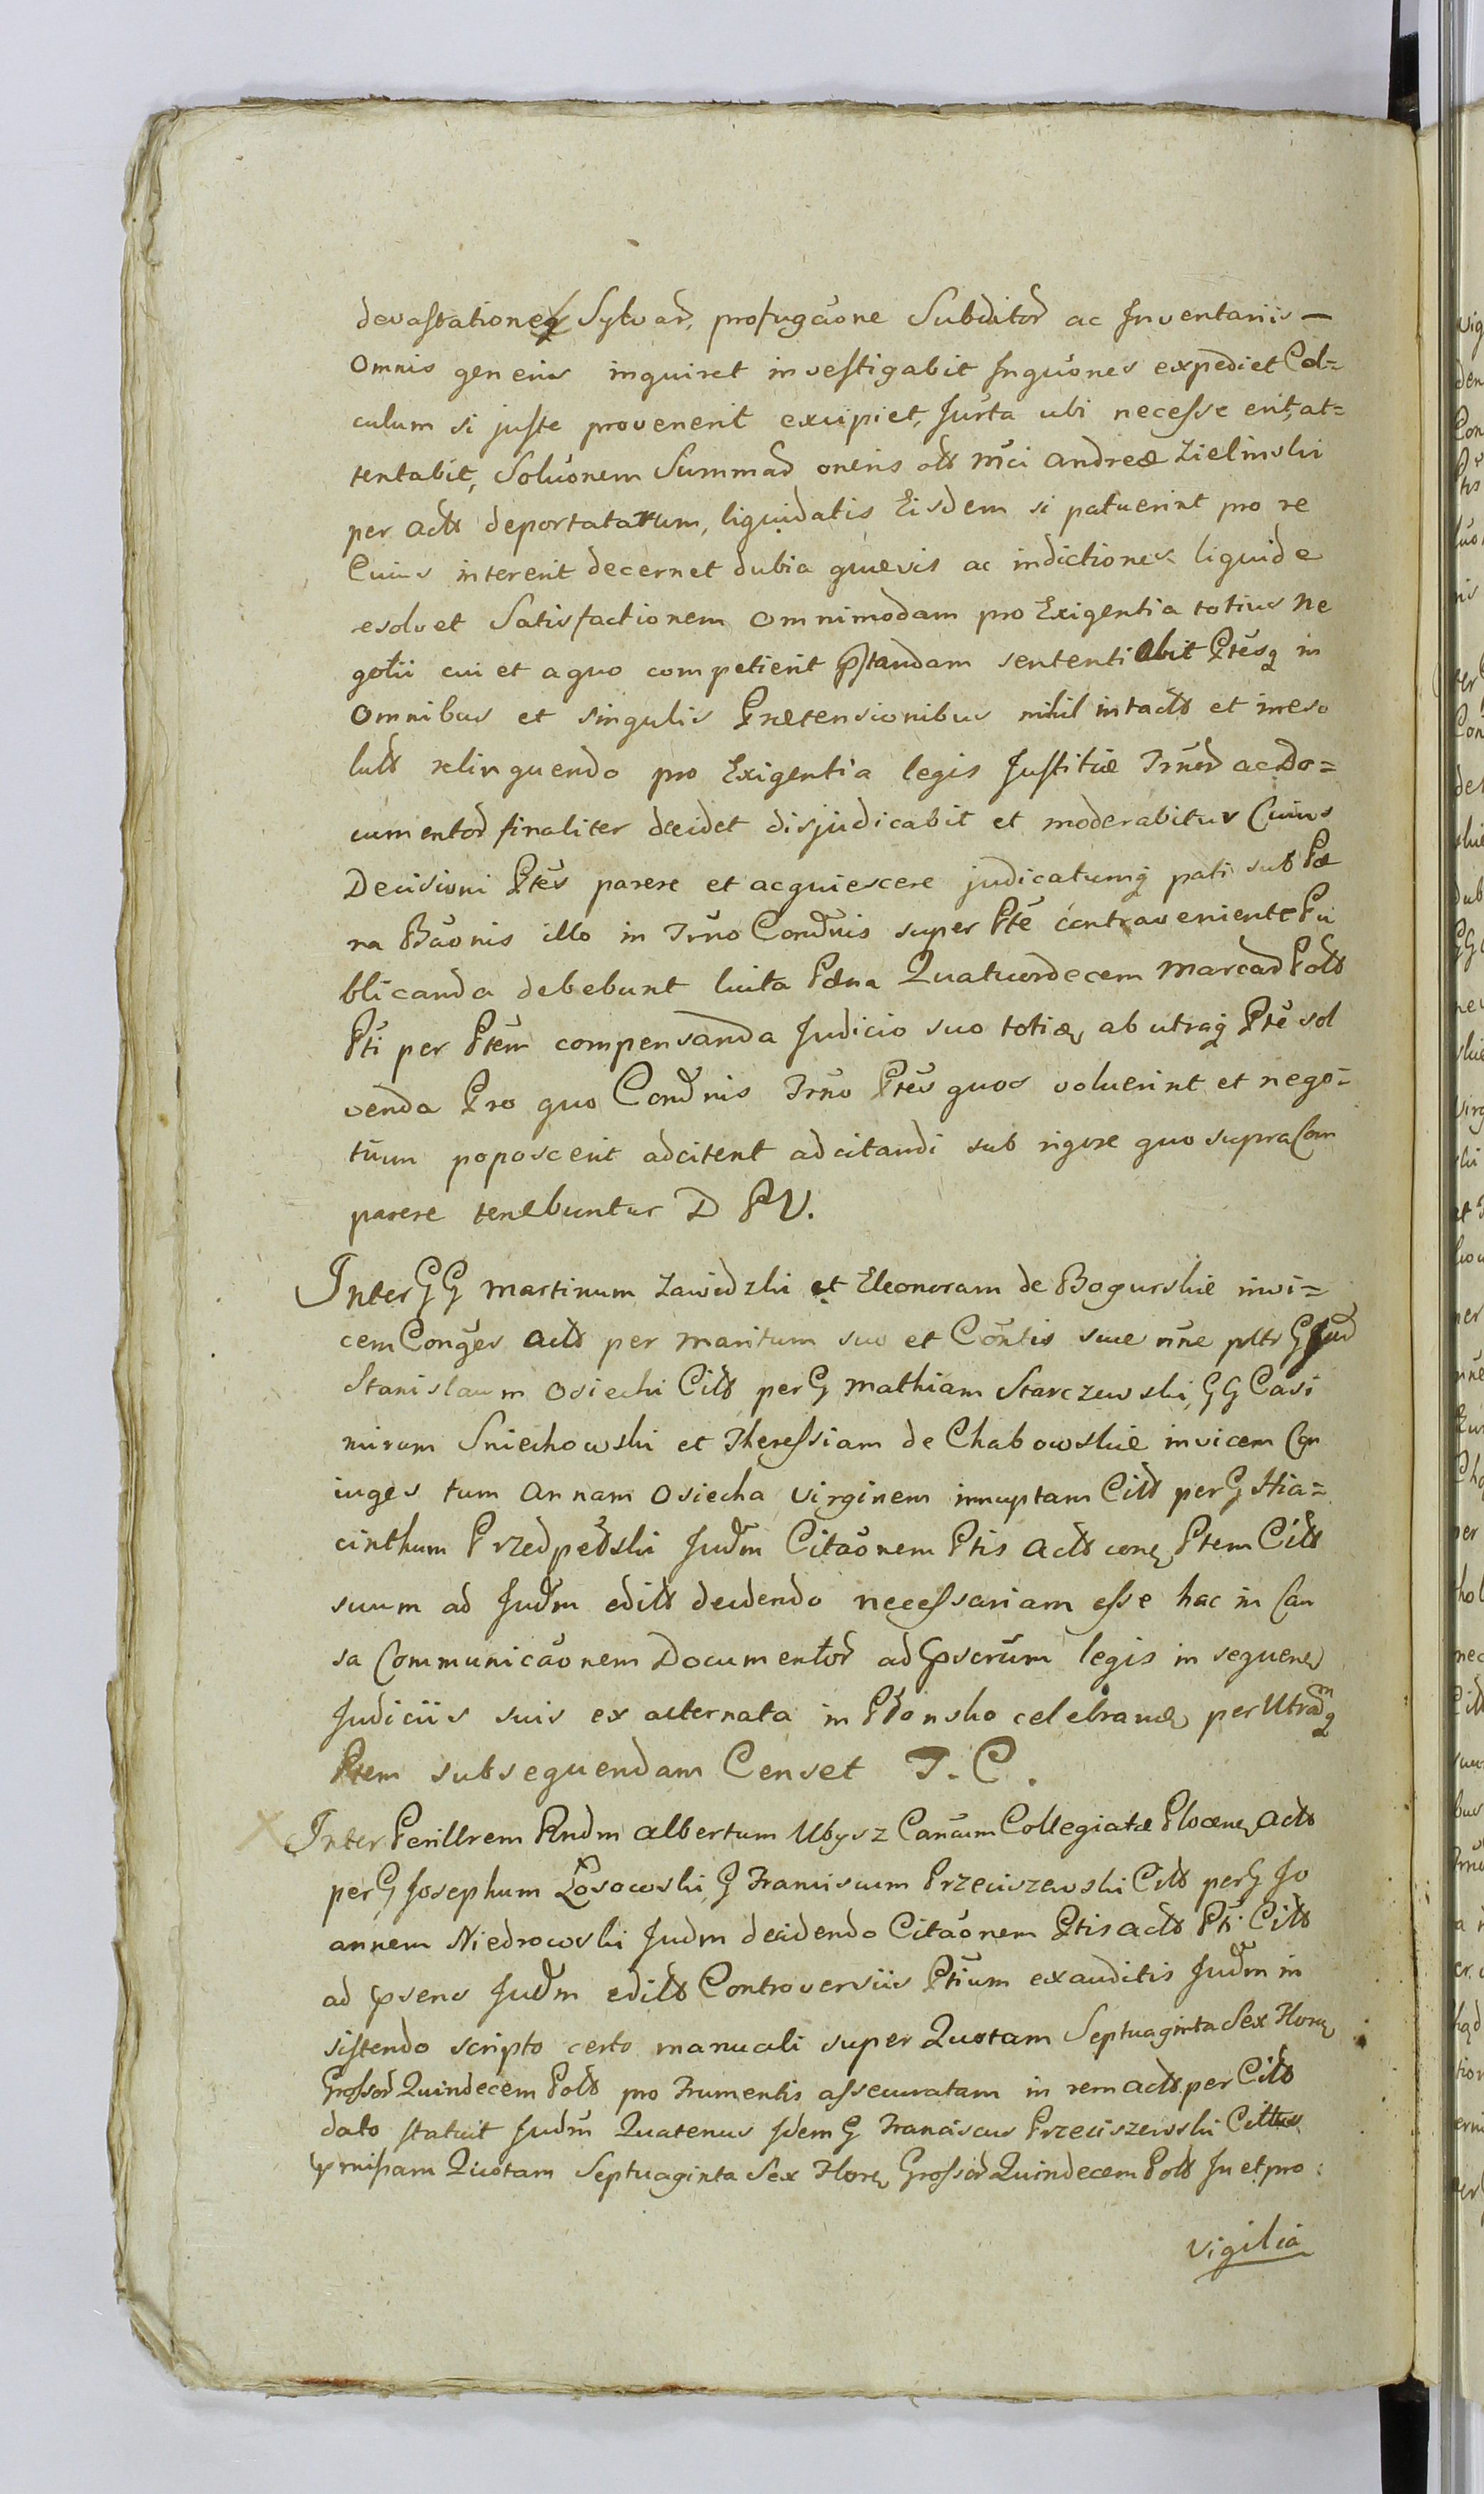 devastatione Sylvar, profugãone Subditor ac Inventariis —
Omnis generis inquiret investigabit Inquones expediet Cal=
culum si juste provenerit excipiet, Jurta ubi necesse erit, at=
tentabit, Soluonem Summar oneris olt Mci Andreæ Zielinski
per Actt deportatarum, liquidatis Eisdem si patuerint pro re
Cuius intererit decernet dubia quævis ac indictiones liquide
esolvet Satisfactionem omnimodam pro Exigentia totius Ne
gotii cui et a quo competierit pstandam sententiabit Ptesq in
Omnibus et singulis Prætensionibus nihil intactt et irreso
lutt relinquendo pro Exigentia legis Justitiæ Irnor ac Do=
cumentor finaliter decidet disjudicabit et moderabitur Cuius
Decisioni Ptes parere et acquiescere judicatumq pati sub Pæ
na Bãonis illo in Trno Condnis super Pte contraveniente Pu
blicanda debebunt luita Pæna Quatuordecem Marcar Poltt
Pti per Ptem compensanda Judicio suo totiæ ab utraq Pte sol
venda Pro quo Condnis Trno Ptes quos voluerint et nego=
tium poposcerit adcitent adcitandi sub rigore quo supra Com
parere tenebuntur D P V.
Inter GG Martinum Zawidzki et Eleonoram de Bogurskie invi=
cem Conges Actt per maritum suo et Contis suæ nne pltt G
Stanislaum Osiecki Citt per G Mathiam Starczewski, GG Casi
mirum Sniechowski et Theressiam de Chabowskie invicem Con
iuges tum Annam Osiecka virginem innuptam Citt per G Hia=
cinthum Przedpełski Judm Citaonem Ptis Actt conq Ptem Citt
suum ad Judm editt decidendo necessariam esse hac in Cau
sa Communicãonem Documentor ad pscrum legis in sequen
Judiciis suis ex alternata in Płonsko celebran per Utramq
Ptem subsequendam Censet T. C.
Inter Perillrem Rndm Albertum Ubysz Cancum Collegiatæ Plocen Actt
per G Josephum Łosowski, G Franciscum Przeciszewski Citt per G Jo
annem Niedrowski Judm decidendo Citaonem Ptis Actt Pti Citt
ad psens Judm editt Controversiis Ptium exauditis Judm in
sistendo scripto certo manuali super Quotam Septuaginta Sex Flor
Grossor Quindecem Poltt pro Frumentis assecuratam in rem Actt per Citt
dato statuit Judm Quatenus Idem G Franciscus Przeciszewski Cittus
prmissam Quotam Septuaginta Sex Flor Grossor Quindecem Poltt In et pro:
vigilia